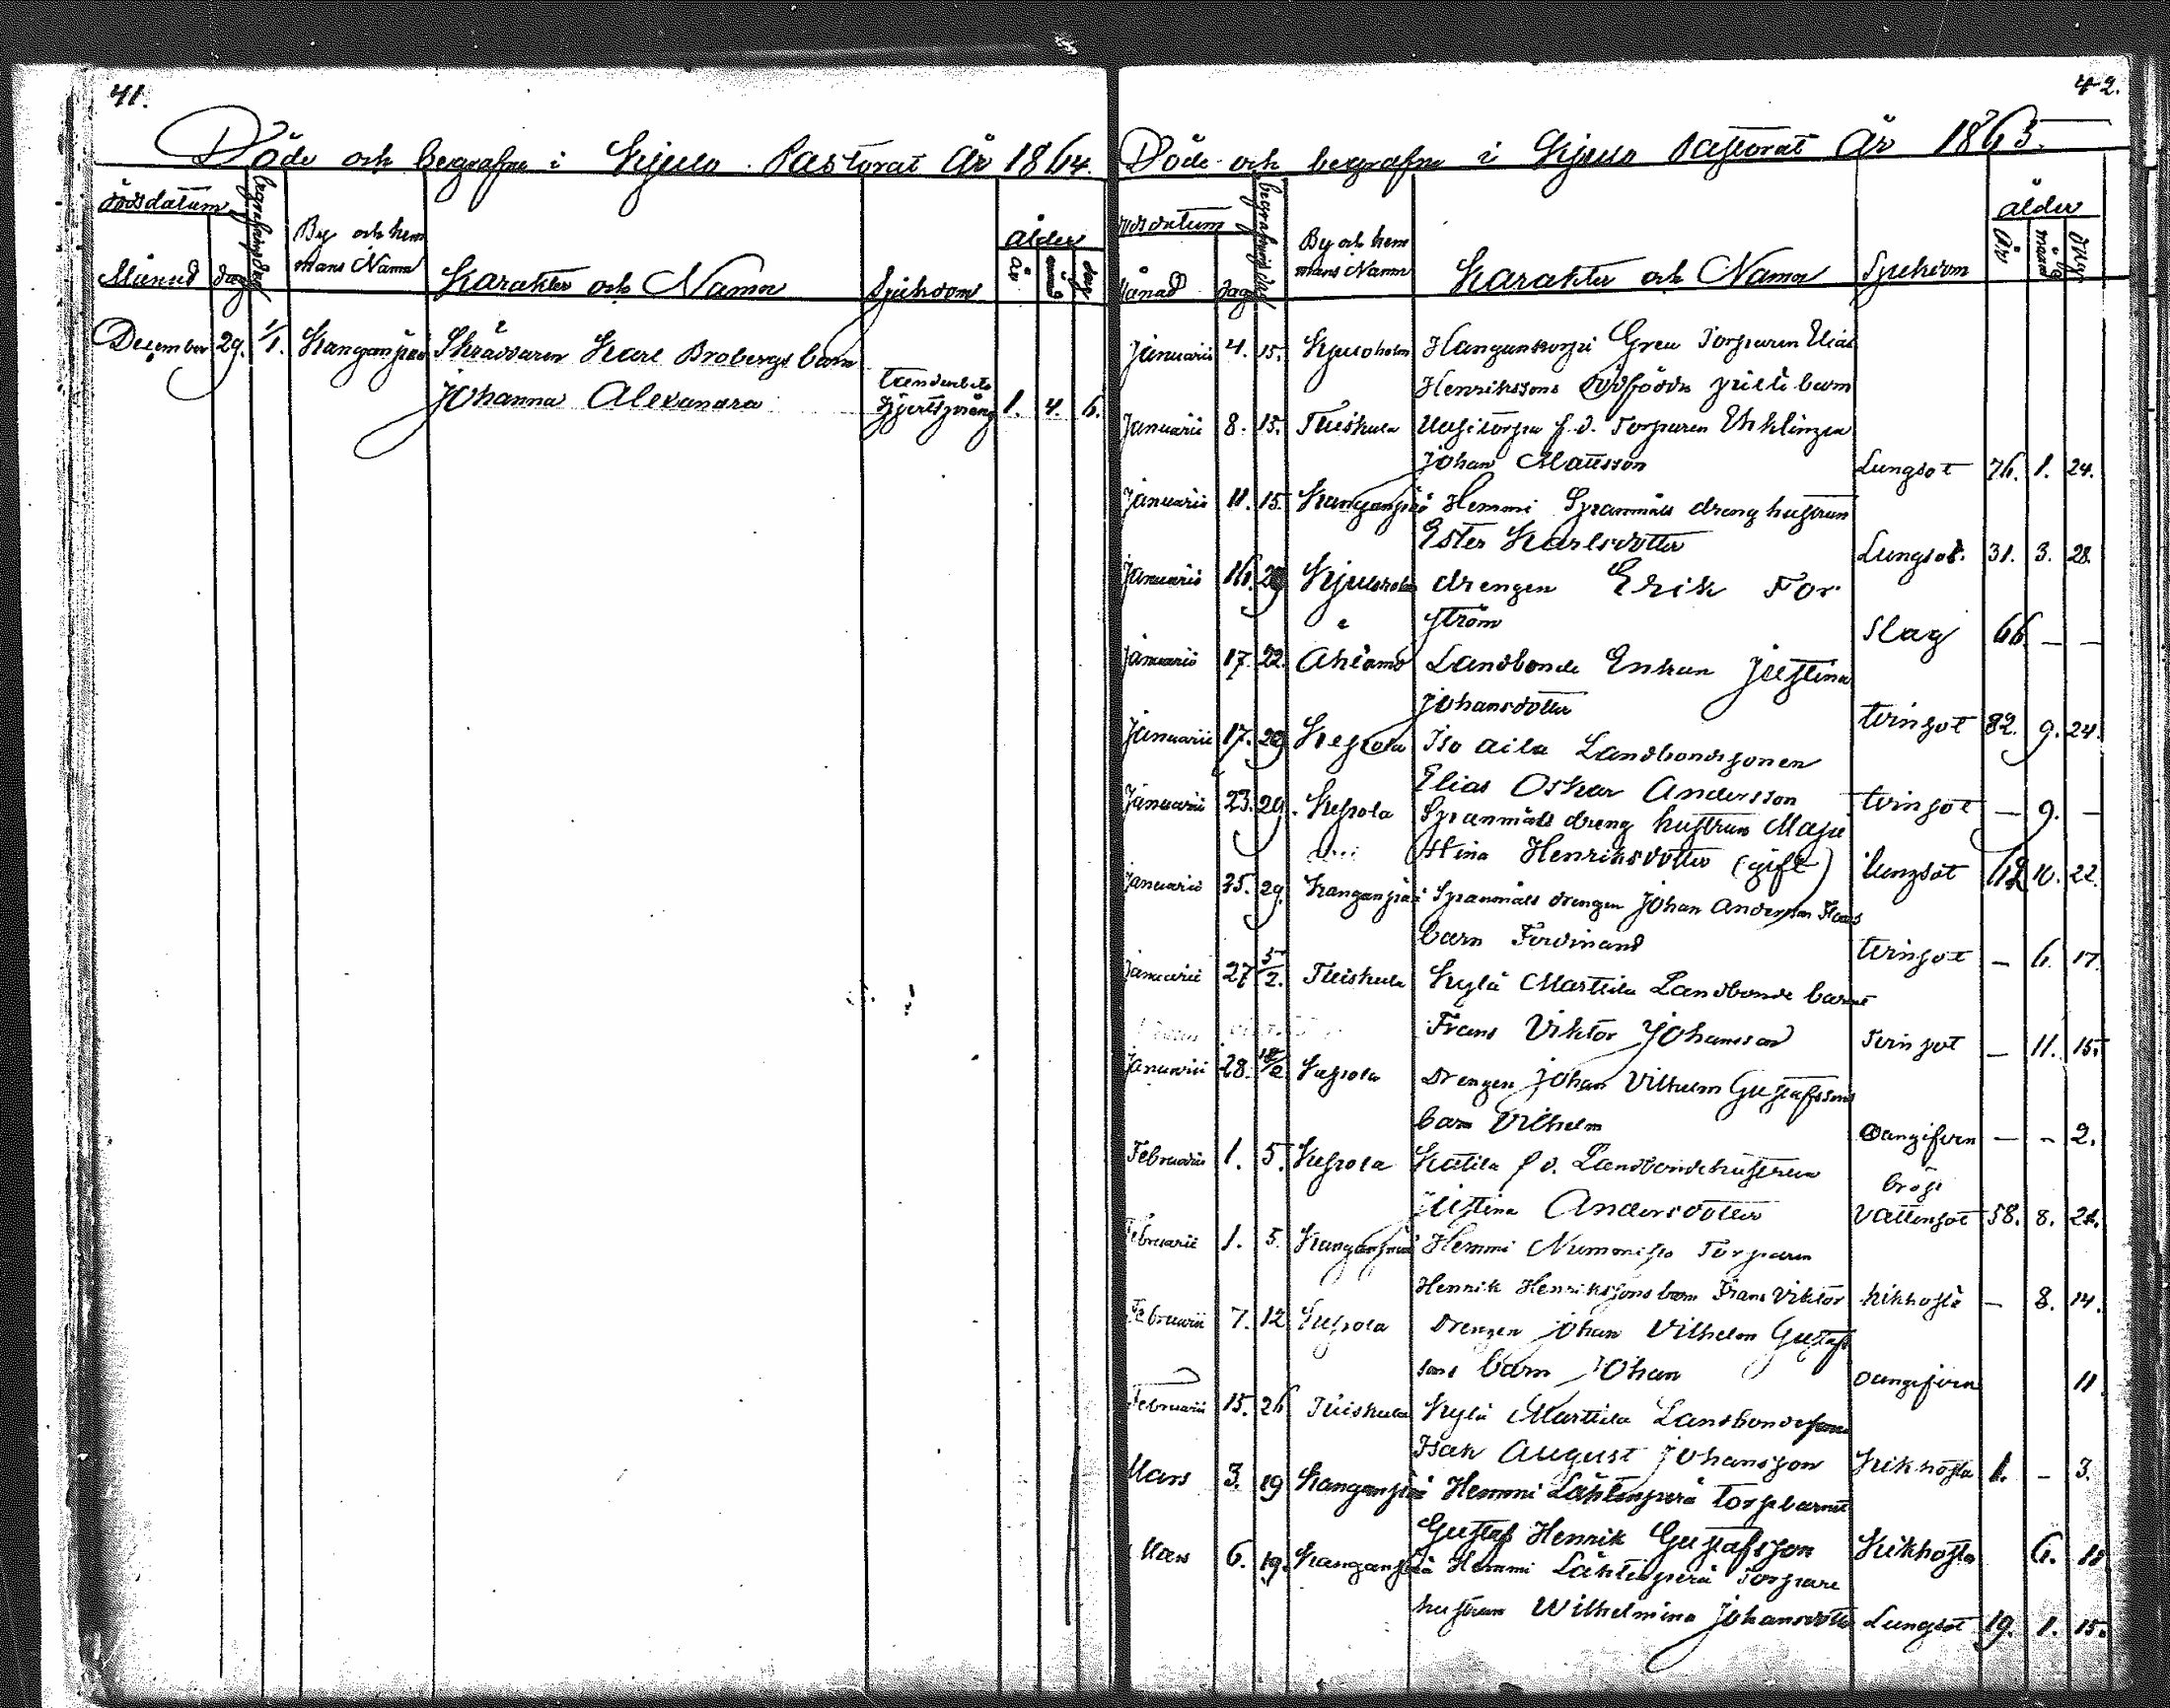 41.
Döde och begrafne i Kjulo Pastorat År 1864.
dödsdatum
begrafningsdag
By och hem
mans Namn
ålder
Månad dag Karakter och Namn Sjukdom år månad dagar
December 29. 1/1. Kanganpää Skräddaren Karl Brobergs barn
Johanna Alexandra Hjertsprång 1. 4. 6.
42.
Döde och begrafne i Kjulo Pastorat År 1865.
dödsdatum
begrafningsdag
By och hem
mans Namn
ålder
Månad dag Karakter och Namn Sjukdom År månad dagar
Januarii 4. 15. Kjuloholm Torparen Elias
Henrikssons dödfödda barn
Januarii 8. 15. Tuiskula f.d. Torparen Enklingen
Johan Mattsson Lungsot 76. 1. 24.
Januarii 11. 15. Kanganpää Hemmi Spanmåls dreng hustrun
Ester Karlsdotter Lungsot. 31. 3. 28.
Januarii 16. 29 Kjuloholm drengen Erik For
ström Slag 66 – –
Januarii 17. 22. Ahlamo Landbonde Enkan Justina
Johansdotter tvinsot 82. 9. 24.
Januarii 17. 29 Kepola Iso aila Landbondesonen
Elias Oskar Andersson tvinsot – 9. –
Januarii 23. 29. Kepola Spanmåls dreng hustrun Maja
Stina Henriksdotter (gift) lungsot 62 10. 22.
Januarii 25. 29. Kanganpää Spanmåls drengen Johan Andersson
barn Ferdinand tvinsot – 6. 17.
Januarii 27 5/2. Tuiskula Kylä Marttila Landbonde barnet
Frans Viktor Johansson Tvinsot – 11. 15.
Januarii 28. 12/2 Kepola Drengen Johan Vilhelm Gustafssons
barn Vilhelm Oangifven – – 2.
Februarii 1. 5. Kepola Kätilä f.d. Landbondehustrun bröst
Justina Andersdotter Vattensot 58. 8. 21.
Februarii 1. 5. Kanganpää Hemmi Torparen
Henrik Henrikssons barn Frans Viktor kikhosta – 8. 14.
Februarii 7. 12 Kepola Drengen Johan Vilhelm Gustafs
sons barn Johan Oangifven 11
Februarii 15. 26 Tuiskula Kylä Marttila Landbondeson
Isak August Johansson Kikhosta 1. – 3.
Mars 3. 19 Kanganpää Hemmi Lähtenperä torpbarnet
Gustaf Henrik Gustafsson Kikhosta 6. 11
Mars 6. 19. Kanganpää Hemmi Lähtenperä Torpare
hustrun Wilhelmina Johansdotter Lungsot 19. 1. 15.